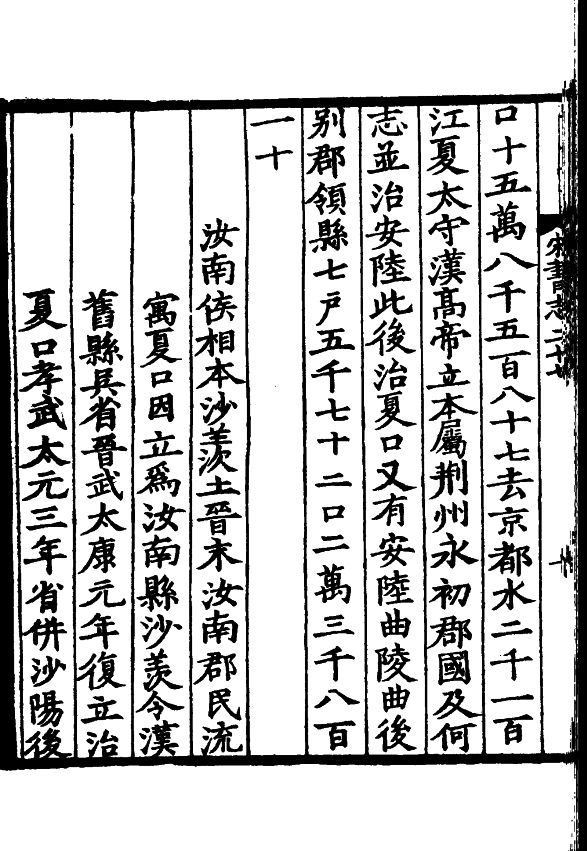 宋書志二十七
口十五萬八千五百八十七去京都水二千一百
江夏太守漢髙帝立本屬荆州永初郡國及何
志並治安陸此後治夏口又有安陸曲陵曲後
别郡領縣七户五千七十二口二萬三千八百
一十
汝南侯相本沙羡土晉末汝南郡民流
寓夏口因立爲汝南縣沙羡令漢
舊縣吳省晉武太康元年復立治
夏口孝武太元三年省併沙陽後